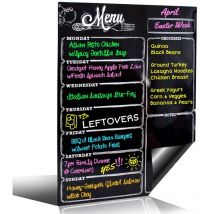 Menu
April
Easter Week
MONDAY
Asian Pesto Chicken
w/Spicy Tortilla Soup
TUESDAY
Crockpot Honey Apple Pork Loin
w/Fresh Spinach Salad
WEDNESDAY
Italian Sausage Stir-Fry
THURSDAY
LEFTOVERS
FRIDAY
BBQ & Black Bean Burgers
w/Sweet Potato Fries
SATURDAY
7pm Family Dinner
@ Carrabba's
YES!!!
SUNDAY
Honey-Teriyaki Glazed Salmon
w/Bok Choy
GROCERIES
Quinoa
Black Beans
Ground Turkey
Lasagna Noodles
Chicken Breast
Greek Yogurt
Corn + Veggies
Bananas + Pears
NOTES